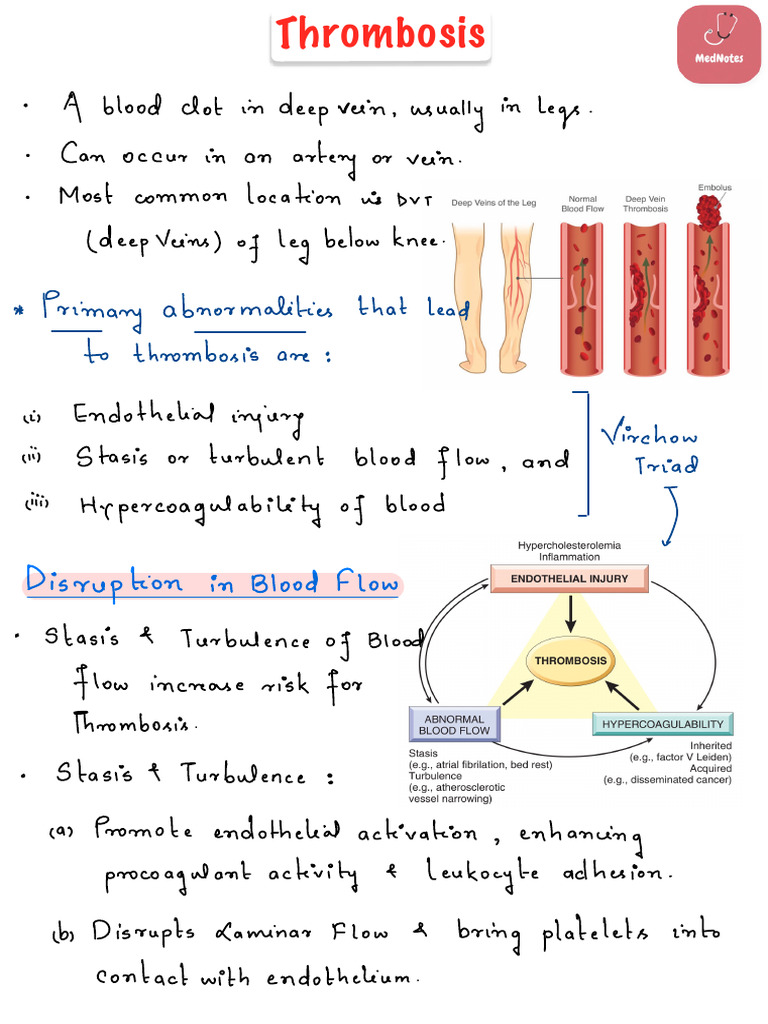 Thrombosis
MedNotes
· A blood clot in deep vein, usually in legs.
· Can occur in an artery or vein.
· Most common location is DVT
(deep Veins) of leg below knee.
Deep Veins of the Leg
Normal
Blood Flow
Deep Vein
Thrombosis
Embolus
* Primary abnormalities that lead
to thrombosis are :
(i) Endothelial injury
(ii) Stasis or turbulent blood flow, and
(iii) Hypercoagulability of blood
Virchow
Triad
Disruption in Blood Flow
· Stasis & Turbulence of Blood
flow increase risk for
Thrombosis.
Hypercholesterolemia
Inflammation
ENDOTHELIAL INJURY
THROMBOSIS
ABNORMAL
BLOOD FLOW
HYPERCOAGULABILITY
Stasis
(e.g., atrial fibrilation, bed rest)
Turbulence
(e.g., atherosclerotic
vessel narrowing)
Inherited
(e.g., factor V Leiden)
Acquired
(e.g., disseminated cancer)
· Stasis & Turbulence :
(a) Promote endothelial activation, enhancing
procoagulant activity & leukocyte adhesion.
(b) Disrupts Laminar Flow & bring platelets into
contact with endothelium.